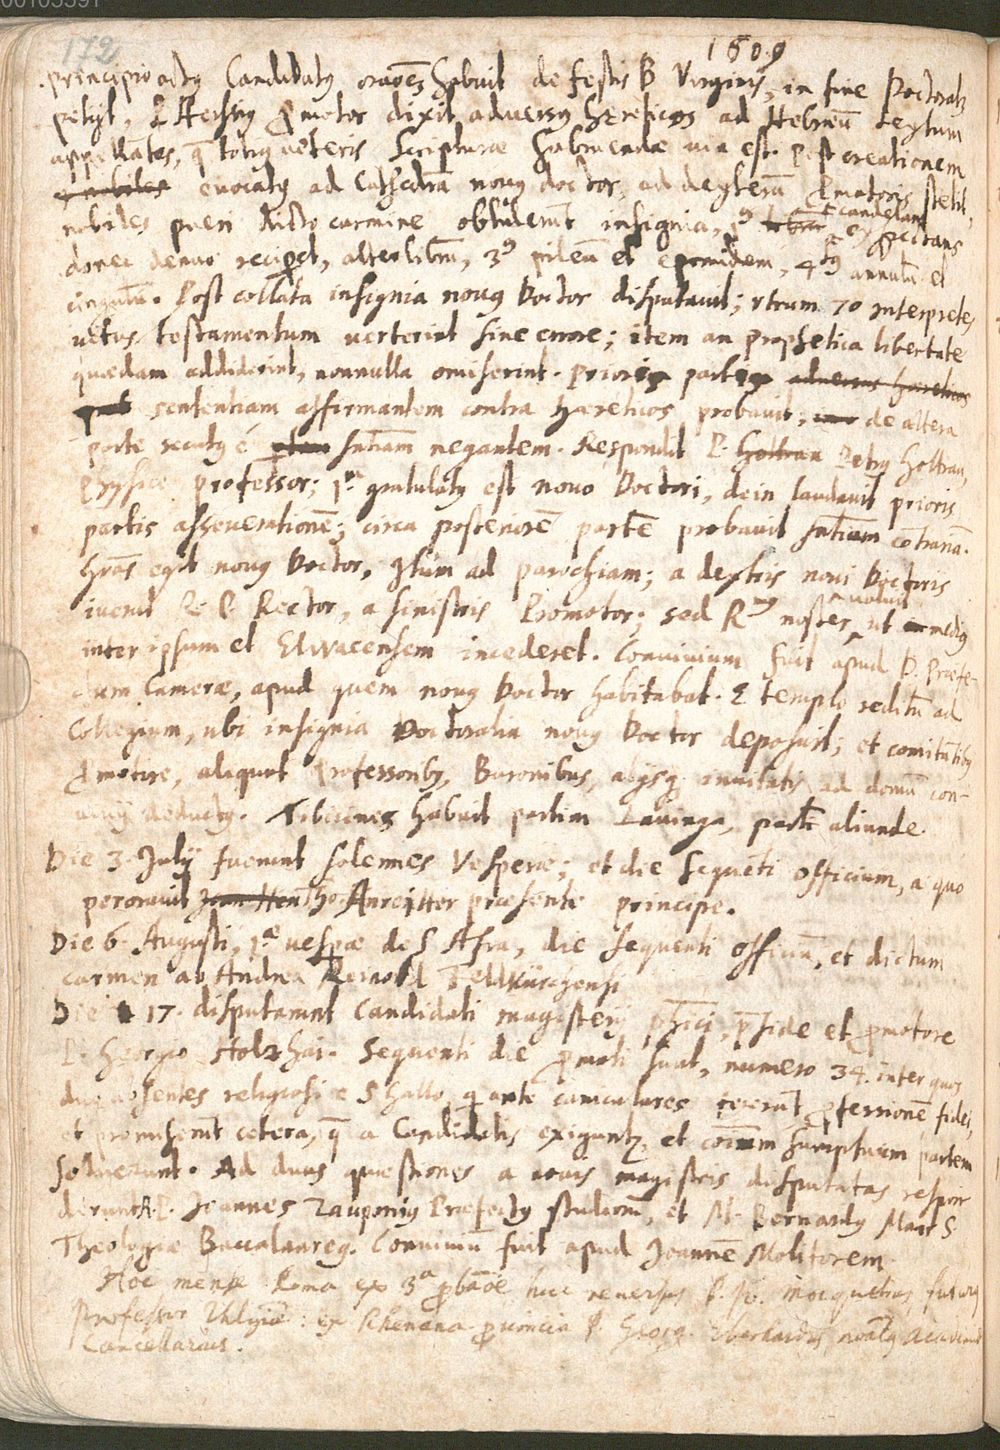 00103391
172
1609
principio actq Candidatq oraões habuit de festis B Virginis, in fine Doctoratq
petijt, P Hersiq Pmotor dixit adversq hæreticos ad Hebræū textum
appellātes, q̃ totiq veteris Scripturæ habendæ via est. Post creationem
evocatq ad Cathedrā novq doctor, ad dexterā Pmotoris stetit,
nobiles pueri dicto carmine obtulerūt insignia, 1q candelam expectans
donec denuo reciperet, alter librū, 3q pileū et epomidem, 4tq annulū et
cingulū. Post collata insignia novq Doctor disputavit; utrum 70 interpretes
vetus testamentum verterint sine errore; item an prophetica libertate
quædam addiderint, nonnulla omiserint. prioris partis adversus hæreticos
sententiam affirmantem contra hæreticos probavit, de altera
parte secutq ẽ sntiam negantem. Respondit P. Holtran Petrq Holtran,
Physicæ professor; 1º gratulatq est novo Doctori, dein laudavit prioris
partis asseverationē; circa posteriorē partē probavit sntiam cōtrariā.
Grãs egit novq Doctor, Itum ad parochiam; a dextris novi Doctoris
iverat R. P. Rector, a sinistris Promotor; sed Rmq noster voluit, ut mediq
inter ipsum et Elwacensem incederet. Convivium fuit apud D. Præfe-
ctum Cameræ, apud quem novq Doctor habitabat. E templo reditū ad
Collegium, ubi insignia Doctoralia novq Doctor deposuit; et comitātibq
Pmotore, aliquot Professoribq, Baronibus, alijsq invitatis ad domū con-
vivij deductq. Tibicines habuit partim Lavinga, partī aliunde.
Die 3. Julij fuerunt solennes Vesperæ; et die sequēti officium, a quo
peroravit Joan Hen Tho. Anreitter præsente principe.
Die 6. Augusti, 1æ vespæ de S Afra, die sequenti officiū, et dictum
carmen ab Andrea Reinold Feldkirchensi
Die 17. disputarunt Candidati magisterij phici, pside et pmotore
P. Georgio Stolzhai. Sequenti die pmoti sunt, numero 34. inter quos
duo absentes religiosi e S Gallo, q ante caniculares fecerūt pfessionē fidei,
et promiserūt cetera, q̃ a Candidatis exiguntq, et cōem sumptuum partem
solverunt. Ad duas quæstiones a novis magistris disputatas respon
derunt R. P. Joannes Zauponiq Præfectq studiorū, et M. Bernardq Mair S
Theologiæ Baccalaureq. Convivium fuit apud Joannē Molitorem
Hoc mense Roma ex 3ª pbãoe huc reversus P. Jo. Mocquetius, futurus
Professor Theologiæ: ex Rhenana pvincia P. Georg. Eberhardus novatq Academiæ
Cancellarius.